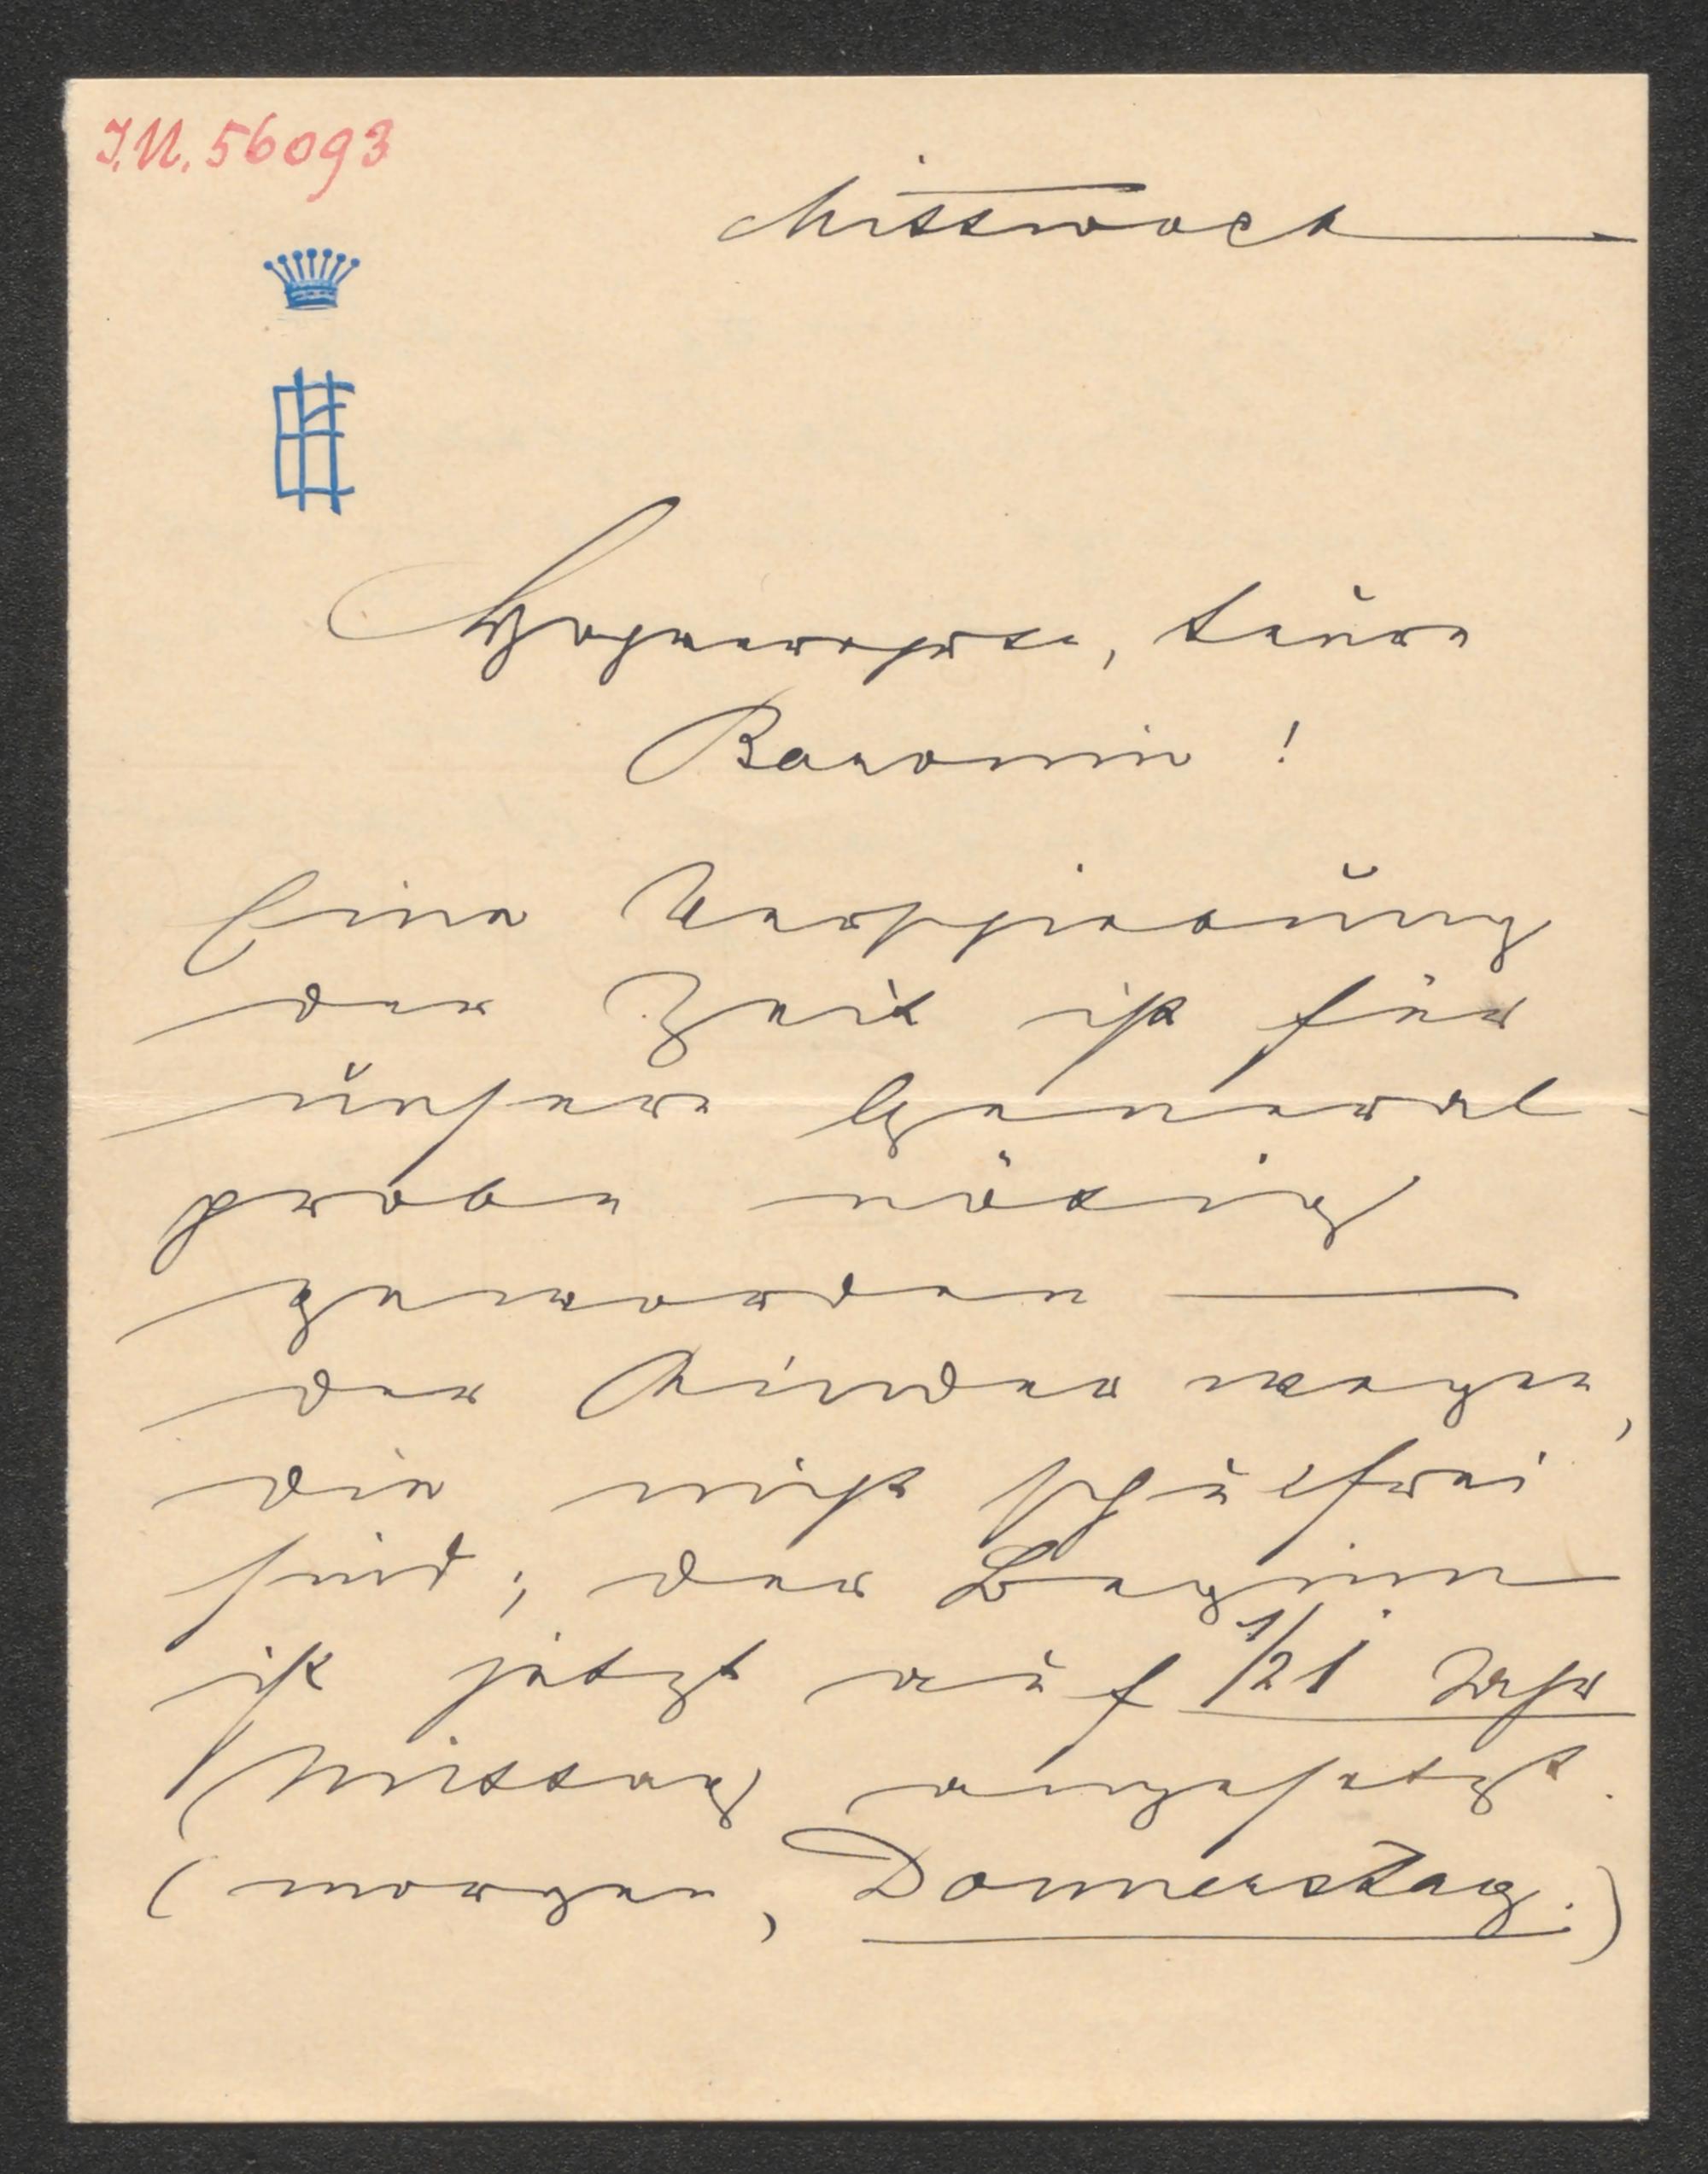 I.N. 56093
Mittwoch
Hochverehrte, teure
Baronin!
Eine Verschiebung
der Zeit ist für
unsere General-
probe nötig
geworden —
der Kinder wegen,
die nicht schulfrei
sind; der Beginn
ist jetzt auf 1/2 1 Uhr
Mittag angesetzt.
(morgen, Donnerstag.)